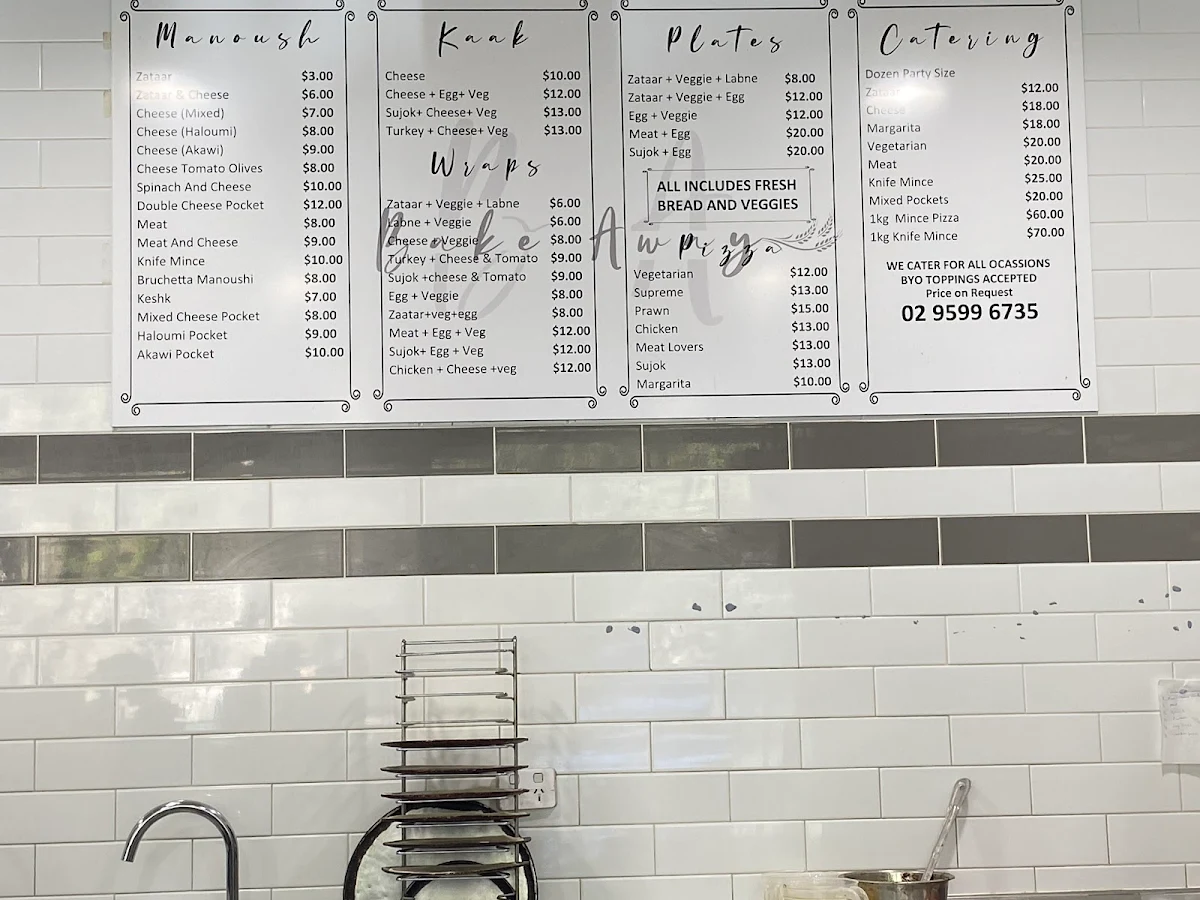 Manoush
Zataar $3.00
Zataar & Cheese $6.00
Cheese (Mixed) $7.00
Cheese (Haloumi) $8.00
Cheese (Akawi) $9.00
Cheese Tomato Olives $8.00
Spinach And Cheese $10.00
Double Cheese Pocket $12.00
Meat $8.00
Meat And Cheese $9.00
Knife Mince $10.00
Bruchetta Manoushi $8.00
Keshk $7.00
Mixed Cheese Pocket $8.00
Haloumi Pocket $9.00
Akawi Pocket $10.00
Kaak
Cheese $10.00
Cheese + Egg+ Veg $12.00
Sujok+ Cheese+ Veg $13.00
Turkey + Cheese+ Veg $13.00
Wraps
Zataar + Veggie + Labne $6.00
Labne + Veggie $6.00
Cheese + Veggie $8.00
Turkey + Cheese & Tomato $9.00
Sujok +cheese & Tomato $9.00
Egg + Veggie $8.00
Zaatar+veg+egg $8.00
Meat + Egg + Veg $12.00
Sujok+ Egg + Veg $12.00
Chicken + Cheese +veg $12.00
Bake Away
BA
Plates
Zataar + Veggie + Labne $8.00
Zataar + Veggie + Egg $12.00
Egg + Veggie $12.00
Meat + Egg $20.00
Sujok + Egg $20.00
ALL INCLUDES FRESH
BREAD AND VEGGIES
Pizza
Vegetarian $12.00
Supreme $13.00
Prawn $15.00
Chicken $13.00
Meat Lovers $13.00
Sujok $13.00
Margarita $10.00
Catering
Dozen Party Size
Zataar $12.00
Cheese $18.00
Margarita $18.00
Vegetarian $20.00
Meat $20.00
Knife Mince $25.00
Mixed Pockets $20.00
1kg Mince Pizza $60.00
1kg Knife Mince $70.00
WE CATER FOR ALL OCASSIONS
BYO TOPPINGS ACCEPTED
Price on Request
02 9599 6735